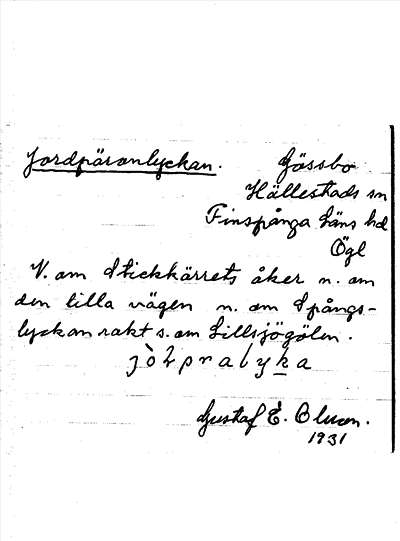 Jordpäronlyckan. Gössbo
Hällestads sn
Finspånga läns hd
Ögl
V. om Stickkärrets åker n. om
den lilla vägen n. om Spångs-
lyckan rakt s. om Lillsjögölen.
Gustaf E. Olsson.
1931